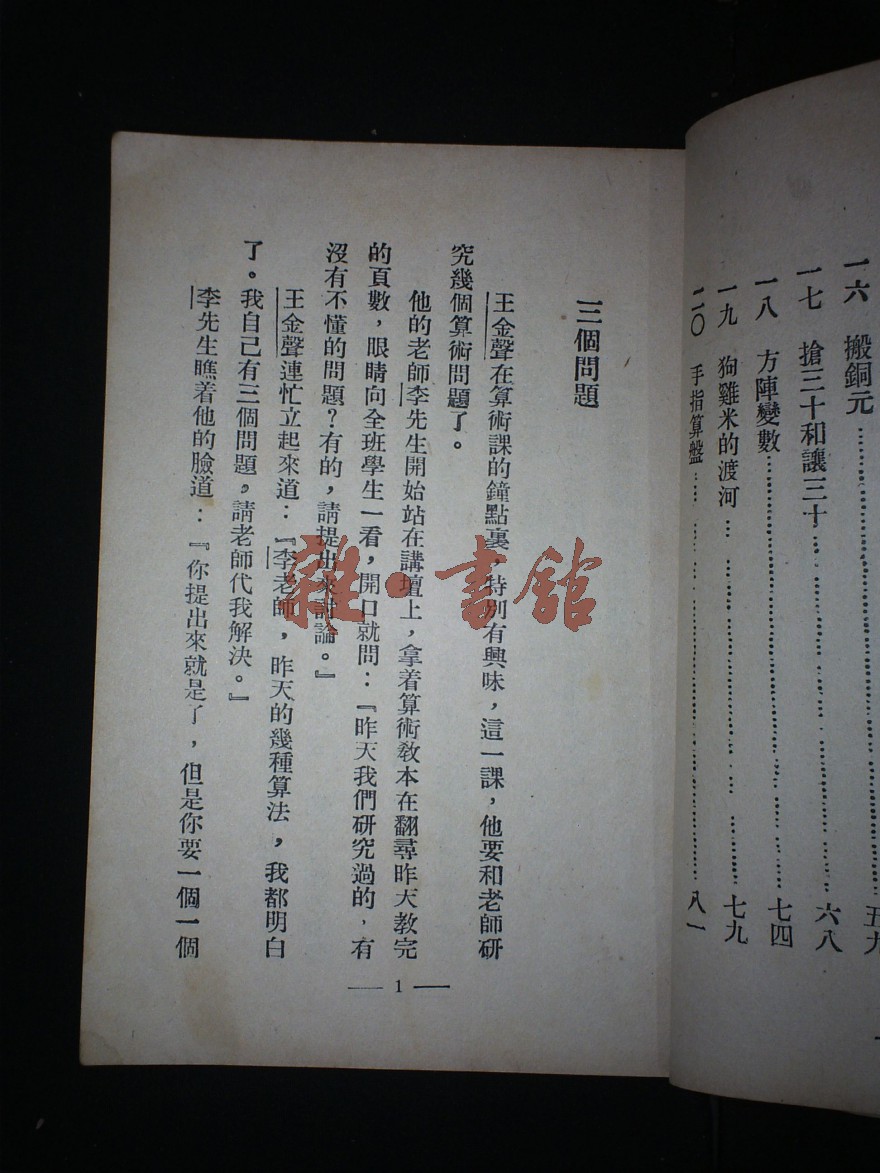 一六 搬銅元 五九
一七 搶三十和讓三十 六八
一八 方陣變數 七四
一九 狗雞米的渡河 七九
二〇 手指算盤 八一
三個問題
王金聲在算術課的鐘點裏，特別有興味，這一課，他要和老師研
究幾個算術問題了。
他的老師李先生開始站在講壇上，拿着算術教本在翻尋昨天教完
的頁數，眼睛向全班學生一看，開口就問：『昨天我們研究過的，有
沒有不懂的問題？有的，請提出來討論。』
王金聲連忙立起來道：『李老師，昨天的幾種算法，我都明白
了。我自己有三個問題，請老師代我解決。』
李先生瞧着他的臉道：『你提出來就是了，但是你要一個一個
— 1 —
雜·書館